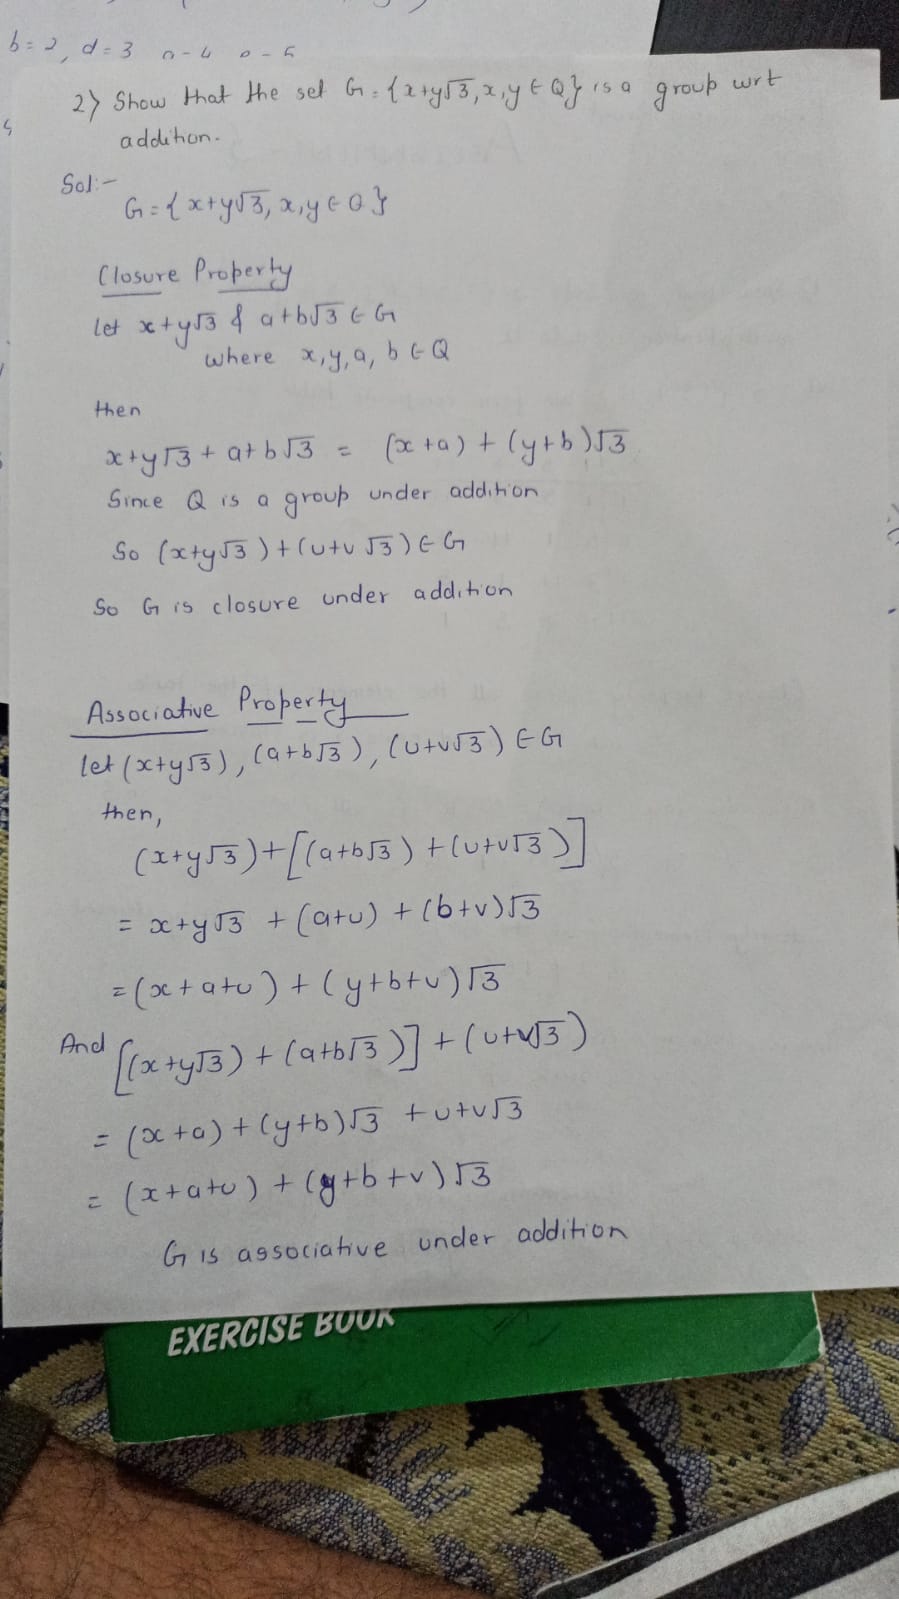 b=2, d=3
2) Show that the set G={x+y√3, x,y ∈ Q} is a group wrt
addition.
Sol:-
G={x+y√3, x,y ∈ Q}
Closure Property
let x+y√3 & a+b√3 ∈ G
where x,y,a, b ∈ Q
then
x+y√3 + a+b√3 = (x+a) + (y+b)√3
Since Q is a group under addition
So (x+y√3)+(u+v√3) ∈ G
So G is closure under addition
Associative Property
let (x+y√3), (a+b√3), (u+v√3) ∈ G
then,
(x+y√3)+[(a+b√3)+(u+v√3)]
= x+y√3 + (a+u) + (b+v)√3
=(x+a+u) + (y+b+v)√3
And [(x+y√3) + (a+b√3)] + (u+v√3)
= (x+a)+(y+b)√3 +u+v√3
= (x+a+u) + (y+b+v)√3
G is associative under addition
EXERCISE BOOK